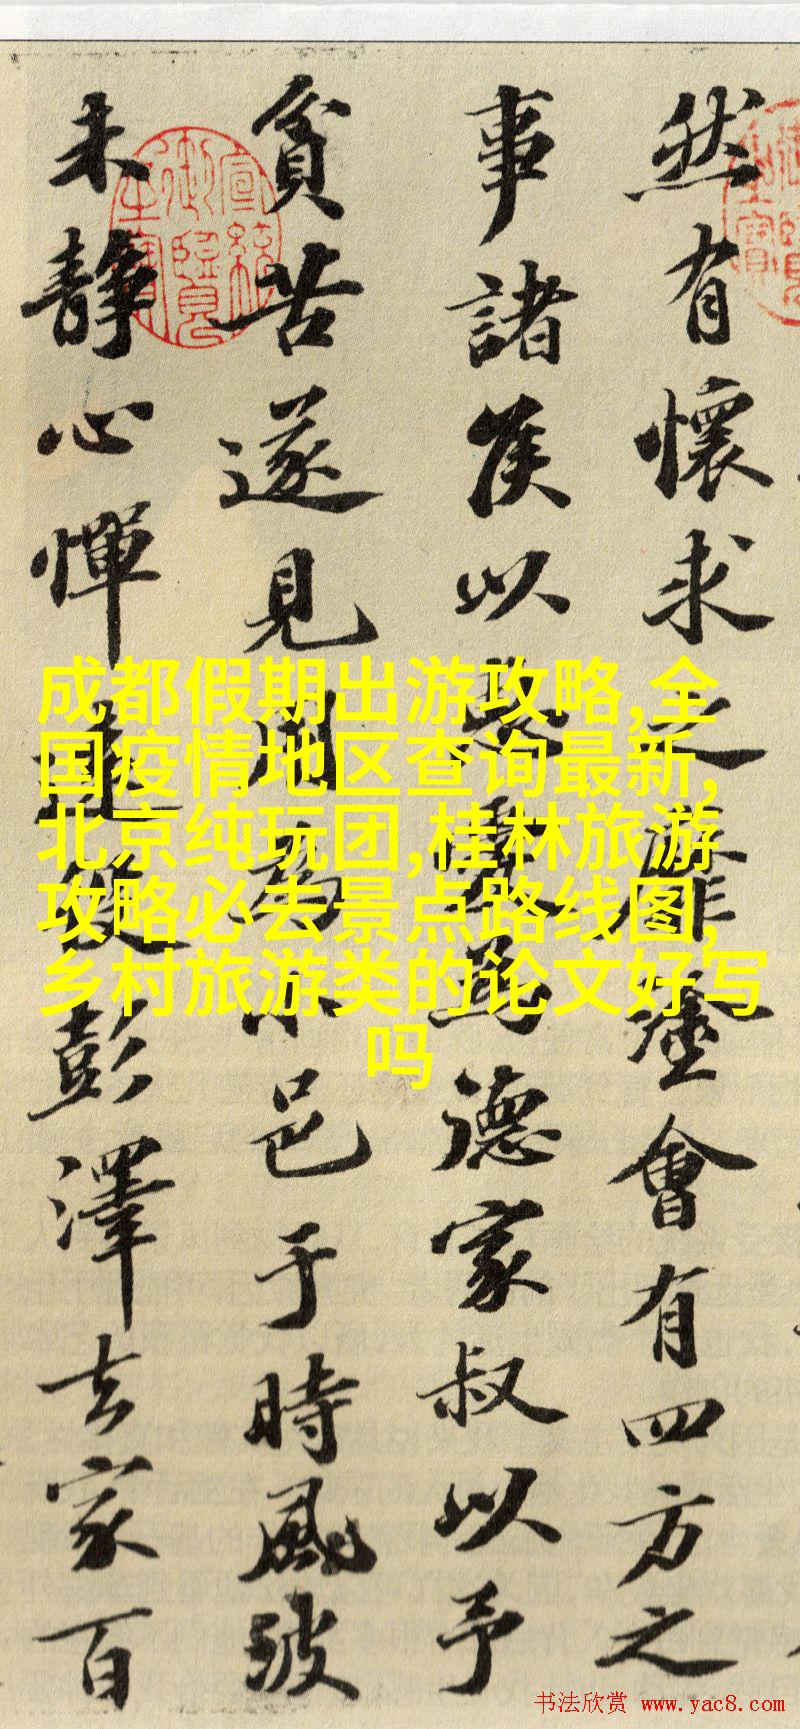 然有懷求之靡塗會有四方之
事諸侯以惠愛為德家叔以予
貧苦遂見用為小邑于時風波
未靜心憚遠役彭澤去家百
宣統御覽之寶
成都假期出游攻略,全
国疫情地区查询最新,
北京纯玩团,桂林旅游
攻略必去景点路线图,
乡村旅游类的论文好写
吗
书法欣赏 www.yac8.com